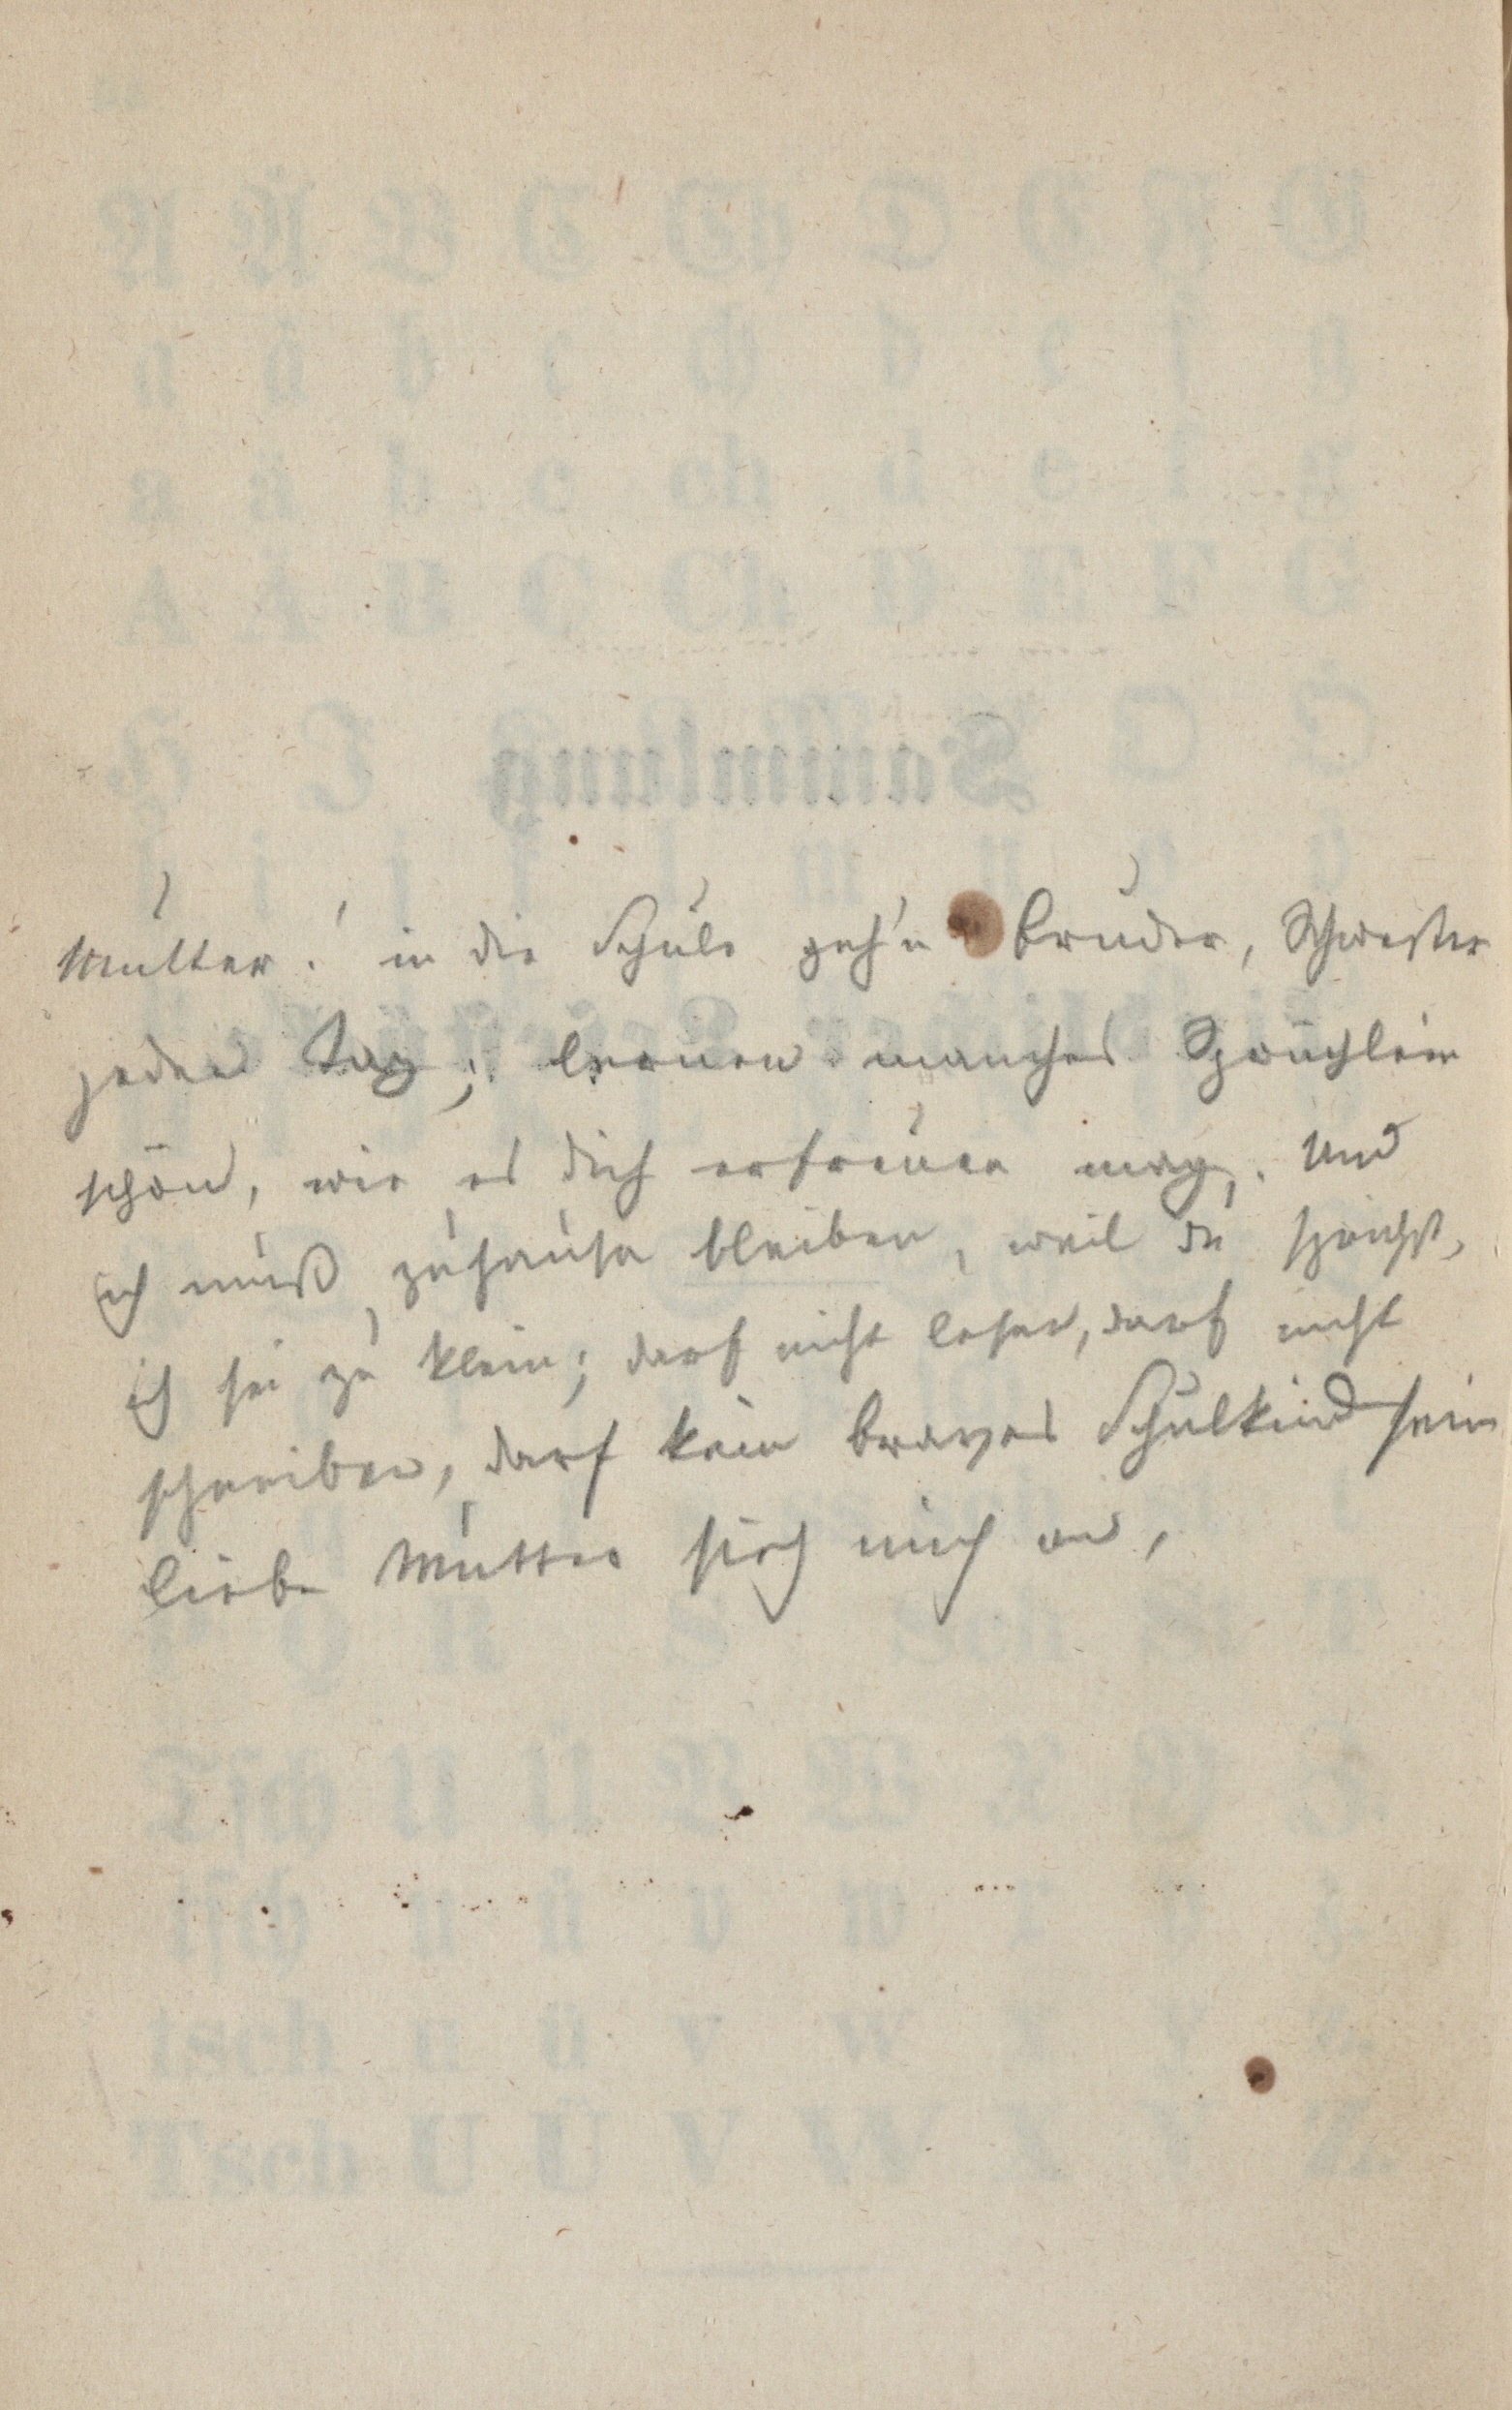 Mutter! in die Schule geh'n Bruder, Schwester
jeden Tag; lernen manches Sprüchlein
schön, wie es dich erfreuen mag. Und
ich muß zuhause bleiben, weil du sprichst,
ich sei zu klein; darf nicht lesen, darf nicht
schreiben, darf kein braves Schulkind sein
liebe Mutter sieh mich an,